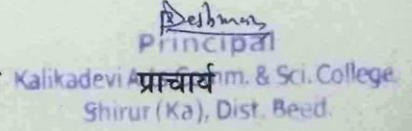 Deshman
Principal
Kalikadevi Arts प्राचार्य Comm. & Sci. College
Shirur (Ka), Dist. Beed.